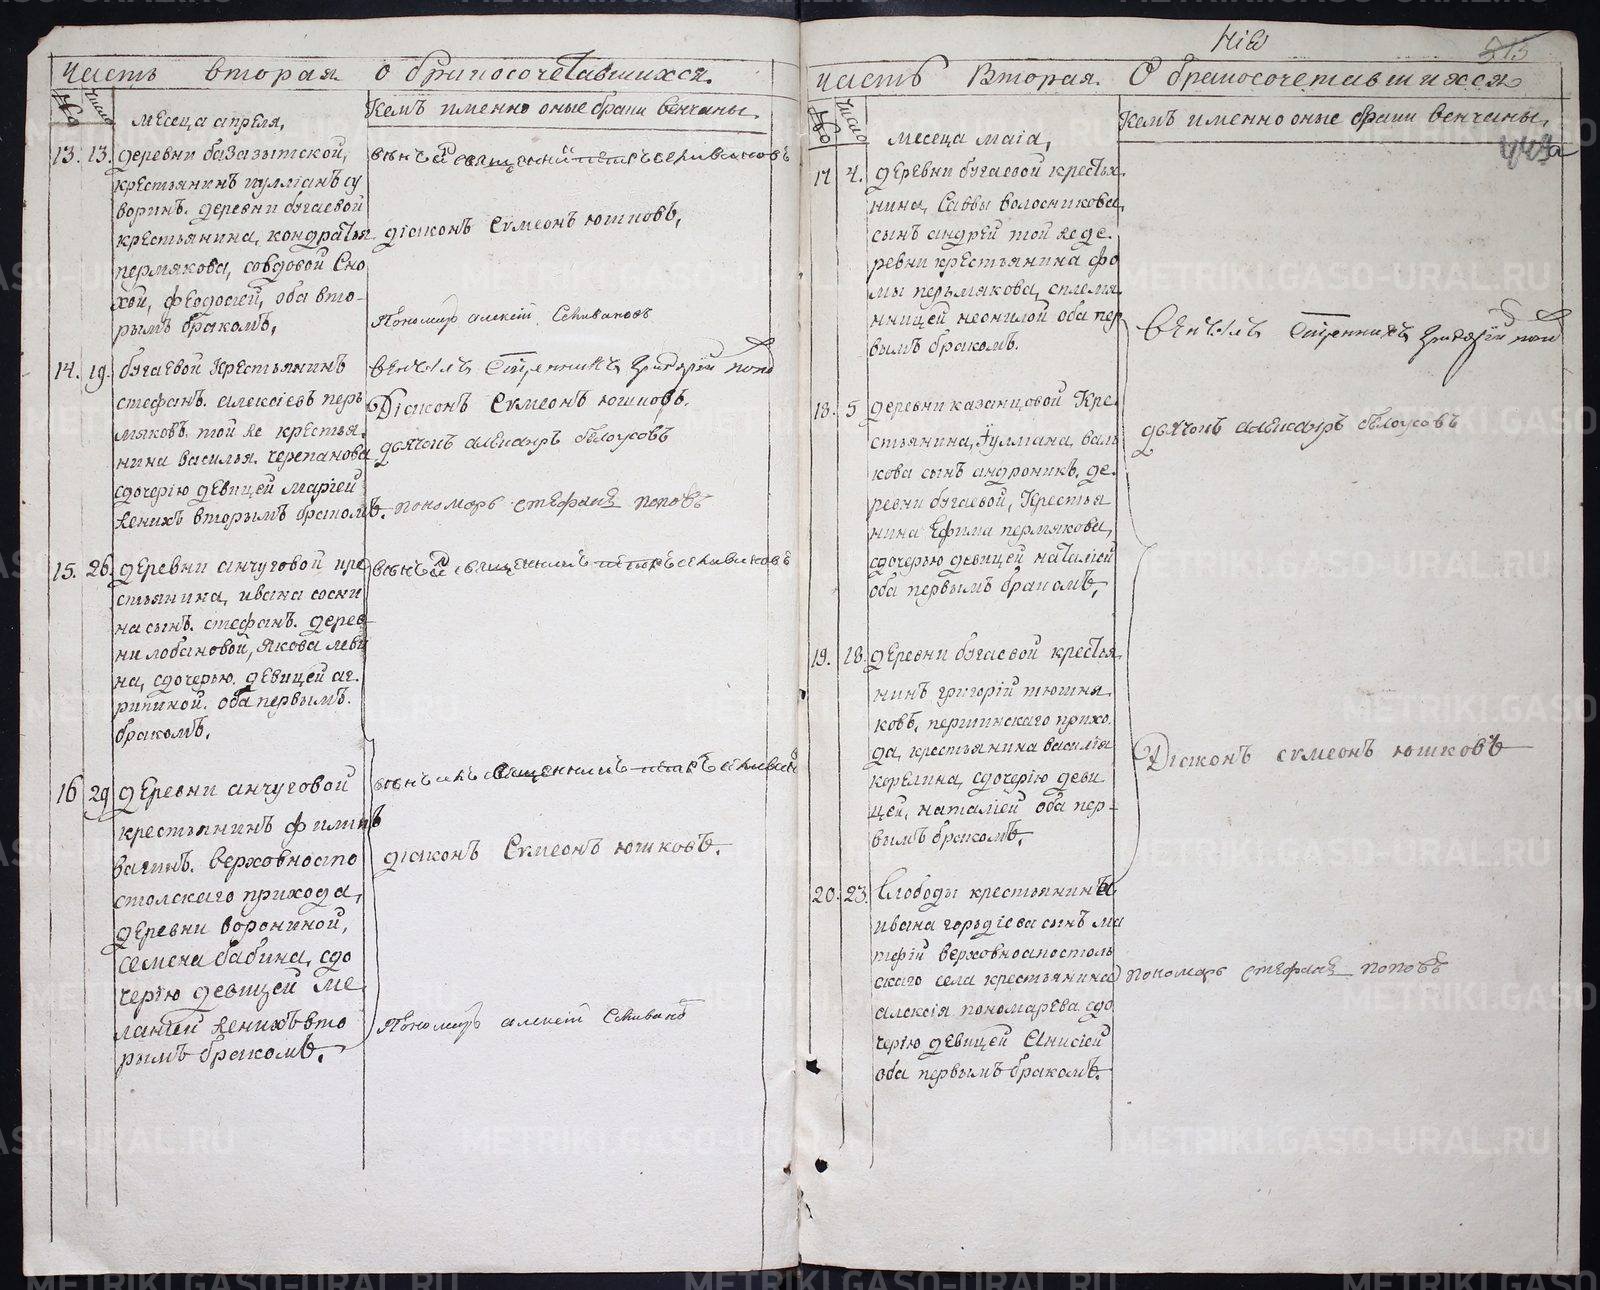 часть вторая о бракосочетавшихся.
№ число
месеца апреля,
Кемъ именно оные браки венчаны.
13. 13. деревни базазытской,
крестьянинъ иуллианъ су
воринъ. деревни бугаевой
крестьянина, кондратья
пермякова, совдовой сно
хой, феодосией, оба вто-
рымъ бракомъ,
священникъ петръ селивановъ
діаконъ Симеонъ юшковъ,
Пономарь алексій Селивановъ
14. 19. бугаевой Крестьянинъ
стефанъ. алексіевъ перь
мяковъ. той же крестья.
нина василья. черепанова
сдочерію девицей маріей
женихъ вторымъ бракомъ.
венчалъ Сщенникъ Григорій попо
Діаконъ Симеонъ юшковъ.
дьячекъ александръ белоусовъ
пономарь стефанъ поповъ
15. 26. деревни анчуговой кре
стьянина, ивана сосни
на сынъ. стефанъ. дерев
ни лобановой, якова леви
на, сдочерью. девицей аг.
рипиной. оба первымъ.
бракомъ.
священникъ петръ селивановъ
16 29 деревни анчуговой
крестьянинъ филипъ
вагинъ. верховноапо
столскаго прихода,
деревни ворониной,
семена бабина, сдо
черію девицей ме
ланіей женихъ вто
рымъ бракомъ.
венчалъ священникъ петръ селиван
діаконъ Симеонъ юшковъ.
Пономарь алексій Селиванов
часть Вторая. О бракосочетавшихся
515
443а
№ число
месеца маіа,
Кемъ именно оные браки венчаны,
17 4. деревни бугаевой крестья.
нина, Саввы волосникова,
сынъ андрей той же де.
ревни крестьянина фо
мы перьмякова, сплемя
нницей неонилой оба пер
вымъ бракомъ.
венчалъ Сщенникъ Григорій попо
18. 5 деревни казанцовой Кре.
стьянина, Іуллиана валь
кова сынъ андроникъ, де.
ревни бугаевой, Крестья
нина Ефима пермякова,
сдочерью девицей наталіей
оба первымъ бракомъ,
дьячекъ александръ белоусовъ
19. 18. деревни бугаевой крестья.
нинъ григорій тюшня
ковъ, першинскаго прихо.
да, крестьянина василія
корелина, сдочерію деви
цей, наталіей оба пер-
вымъ бракомъ.
Діаконъ симеонъ юшковъ
20. 23. Слободы крестьянина
ивана гордіева сынъ ма
тфій верховноапостоль
скаго села крестьянина
алексія пономарева сдо
черію девицей Анисіей
оба первымъ бракомъ.
пономарь стефанъ поповъ